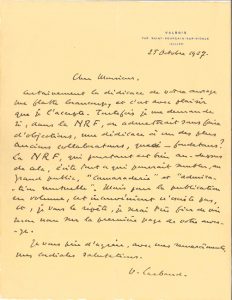 VALBOIS
PAR SAINT-POURÇAIN-SUR-SIOULE
(ALLIER)
25 Octobre 1927.
Cher Monsieur,
Certainement la dédicace de votre ouvrage
me flatte beaucoup, et c'est avec plaisir
que je l'accepte. Toutefois je me demande
si, dans la NRF, on admettrait sans faire
d'objections, une dédicace à un des plus
anciens collaborateurs, quasi-fondateur?
La NRF, qui pourtant est bien au-dessus
de cela, évite tout ce qui pourrait sembler, au
grand public, "camaraderie" et "admira-
tion mutuelle". Mais pour la publication
en volume, cet inconvénient n'existe pas,
et, je vous le répète, je serai très fier de voir
mon nom sur la première page de votre ouvra-
ge.
Je vous prie d'agréer, avec mes remerciements,
mes cordiales salutations.
V. Larbaud.